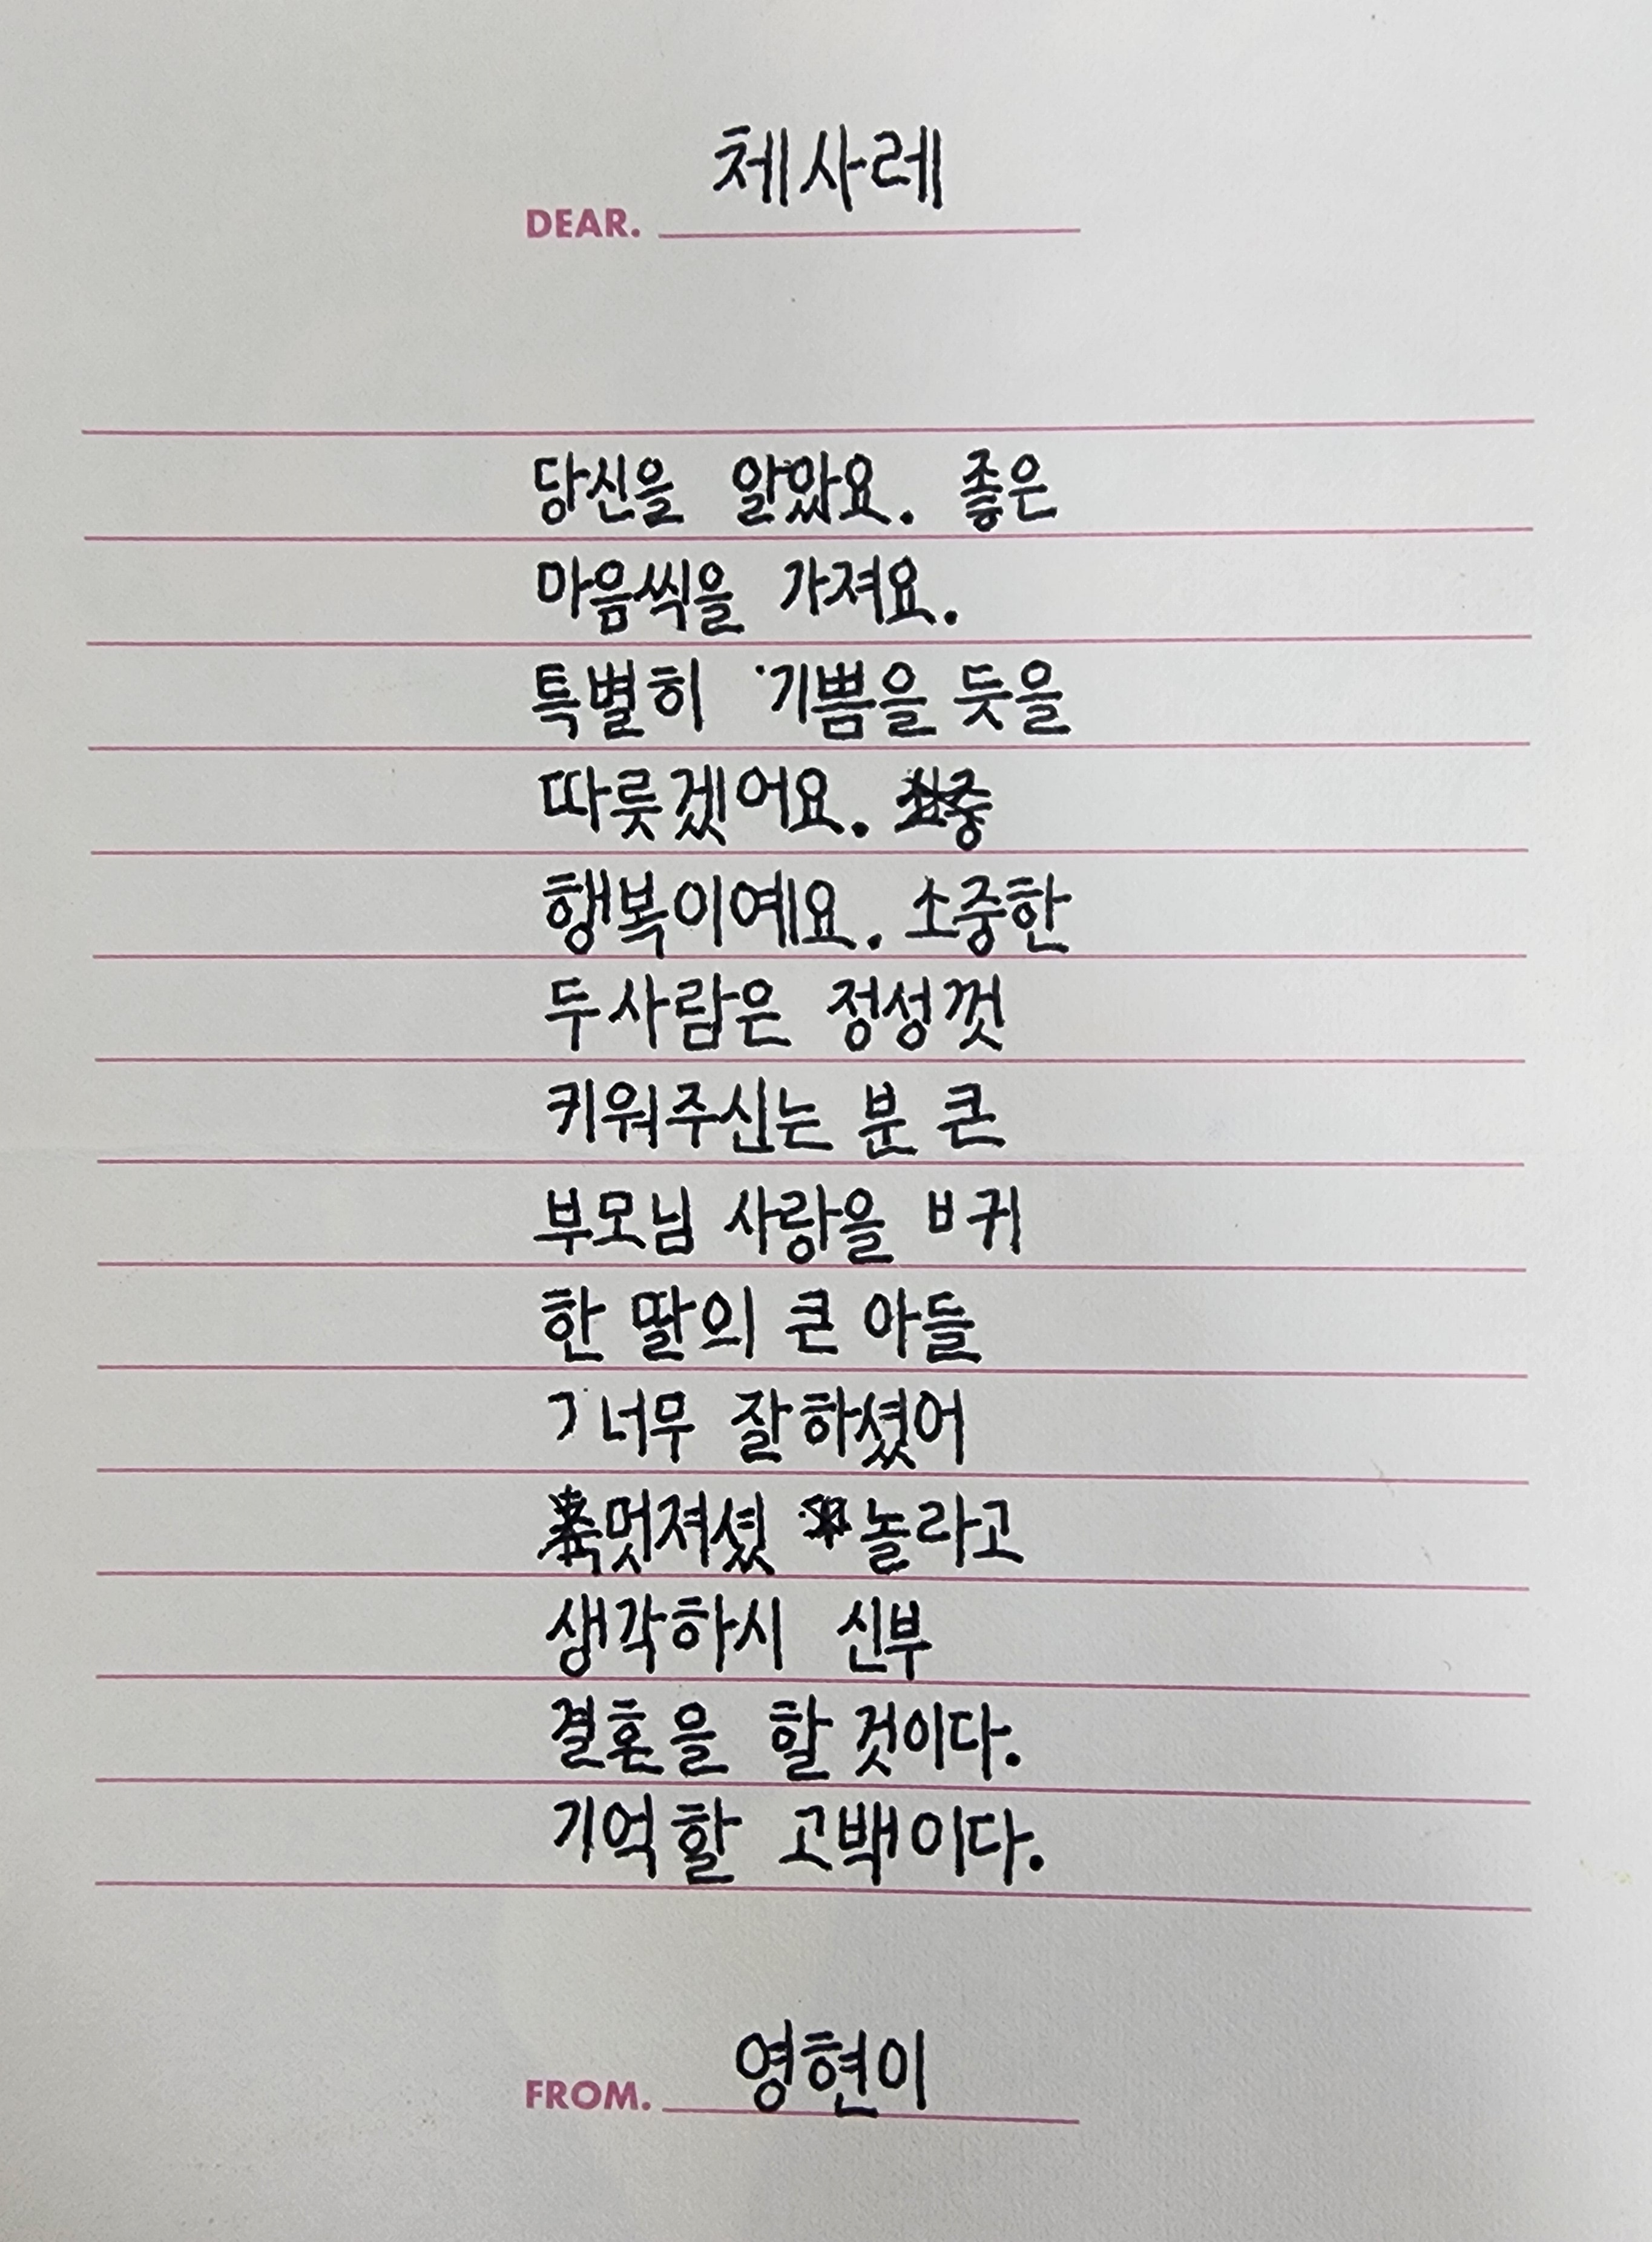 체사레
DEAR.
당신을 알았요. 좋은
마음씩을 가져요.
특별히 기쁨을 듯을
따릇겠어요.
행복이예요. 소중한
두사람은 정성껏
키워주신는 분 큰
부모님 사랑을 ㅂ귀
한 딸의 큰 아들
ㄱ너무 잘하셨어
멋져셨 놀라고
생각하시 신부
결혼을 할 것이다.
기억할 고백이다.
영현이
FROM.